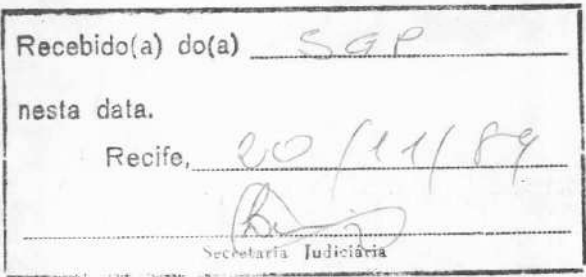 Recebido(a) do(a) SGP
nesta data.
Recife, 20/11/89
Secretaria Judiciária